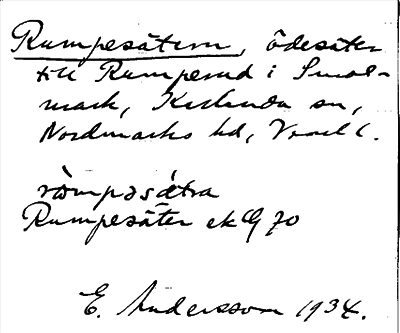 Rumpesätern, ödesäter
till Rumperud i Smol-
mark, Karlanda sn,
Nordmarks hd, Vrml l.
råmpəsætra
Rumpesäter ek G 70
E. Andersson 1934.